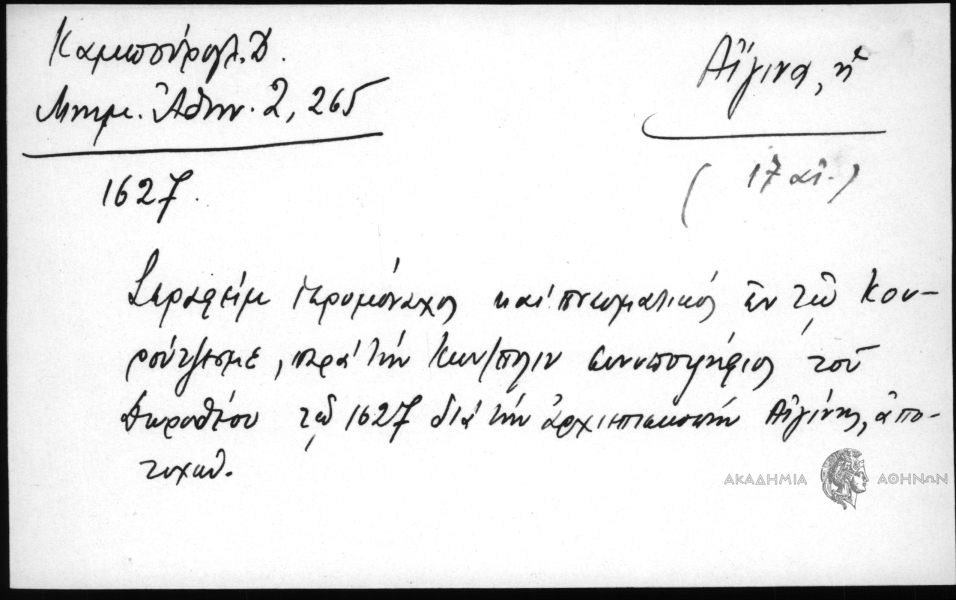 Καμπούρογλ. Δ.
Μνημ. Ἀθην. 2, 265
Αἴγινα, ἡ
1627.
(17 αἰ.)
Σεραφεὶμ ἱερομόναχος καὶ πνευματικός ἐν τῷ Κου-
ρούτζεσμε, παρὰ τὴν Κων/πολιν συνυποψήφιος τοῦ
Δωροθέου τῷ 1627 διὰ τὴν ἀρχιεπισκοπήν Αἰγίνης, ἀπο-
τυχών.
ΑΚΑΔΗΜΙΑ ΑΘΗΝΩΝ